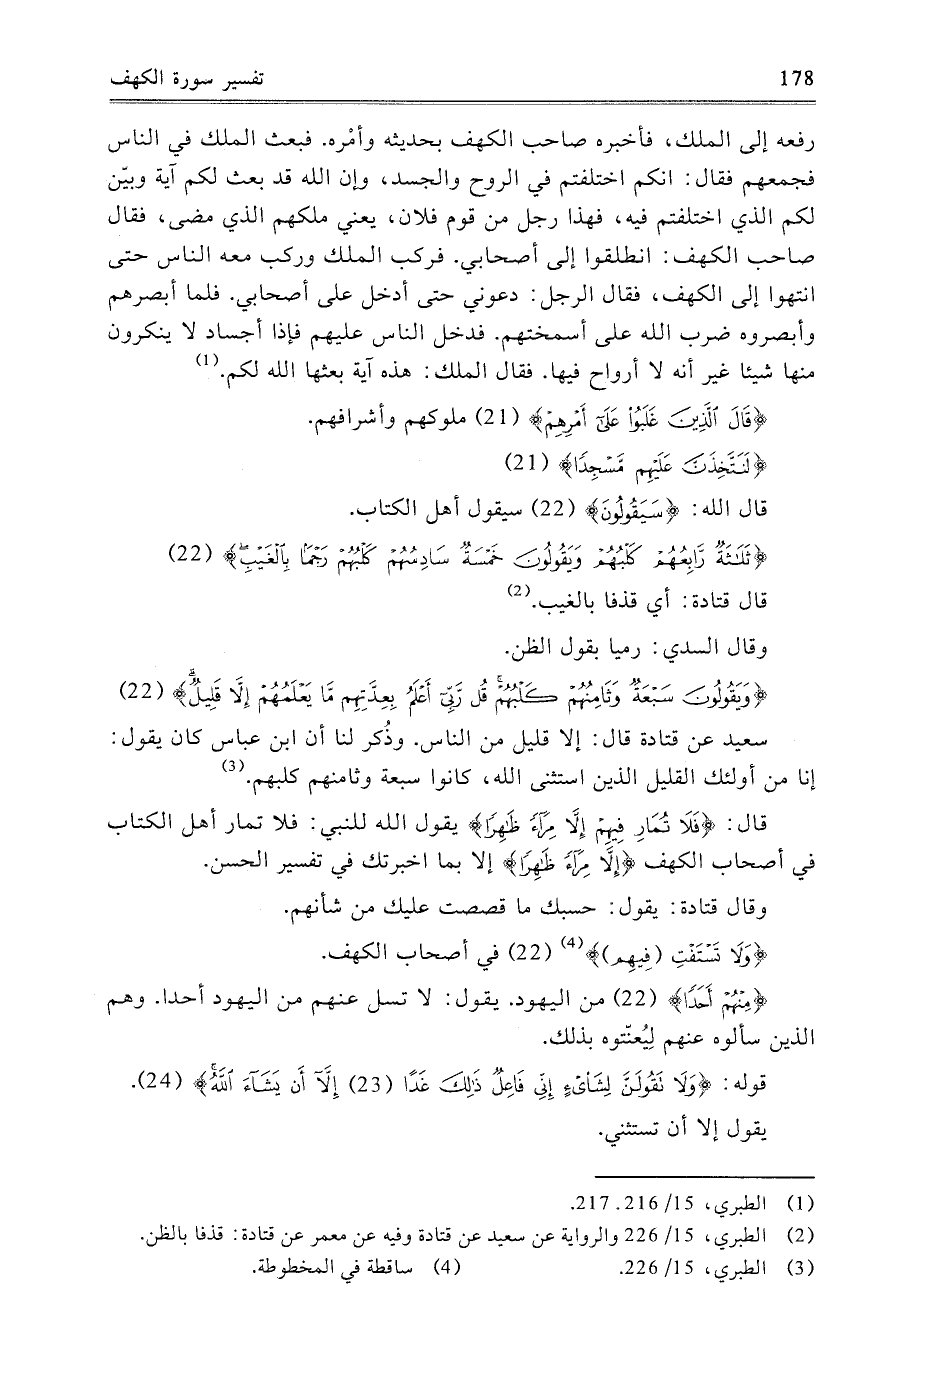 178
تفسير سورة الكهف
رفعه إلى الملك، فأخبره صاحب الكهف بحديثه وأمْره. فبعث الملك في الناس
فجمعهم فقال: انكم اختلفتم في الروح والجسد، وإن الله قد بعث لكم آية وبيّن
لكم الذي اختلفتم فيه، فهذا رجل من قوم فلان، يعني ملكهم الذي مضى، فقال
صاحب الكهف: انطلقوا إلى أصحابي. فركب الملك وركب معه الناس حتى
انتهوا إلى الكهف، فقال الرجل: دعوني حتى أدخل على أصحابي. فلما أبصرهم
وأبصروه ضرب الله على أسمختهم. فدخل الناس عليهم فإذا أجساد لا ينكرون
منها شيئا غير أنه لا أرواح فيها. فقال الملك: هذه آية بعثها الله لكم.(1)
﴿قَالَ ٱلَّذِينَ غَلَبُوا۟ عَلَىٰٓ أَمْرِهِمْ﴾ (21) ملوكهم وأشرافهم.
﴿لَنَتَّخِذَنَّ عَلَيْهِم مَّسْجِدًا﴾ (21)
قال الله: ﴿سَيَقُولُونَ﴾ (22) سيقول أهل الكتاب.
﴿ثَلَٰثَةٌ رَّابِعُهُمْ كَلْبُهُمْ وَيَقُولُونَ خَمْسَةٌ سَادِسُهُمْ كَلْبُهُمْ رَجْمًۢا بِٱلْغَيْبِۖ﴾ (22)
قال قتادة: أي قذفا بالغيب.(2)
وقال السدي: رميا بقول الظن.
﴿وَيَقُولُونَ سَبْعَةٌ وَثَامِنُهُمْ كَلْبُهُمْۚ قُل رَّبِّىٓ أَعْلَمُ بِعِدَّتِهِم مَّا يَعْلَمُهُمْ إِلَّا قَلِيلٌۗ﴾ (22)
سعيد عن قتادة قال: إلا قليل من الناس. وذُكر لنا أن ابن عباس كان يقول:
إنا من أولئك القليل الذين استثنى الله، كانوا سبعة وثامنهم كلبهم.(3)
قال: ﴿فَلَا تُمَارِ فِيهِمْ إِلَّا مِرَآءً ظَٰهِرًا﴾ يقول الله للنبي: فلا تمار أهل الكتاب
في أصحاب الكهف ﴿إِلَّا مِرَآءً ظَٰهِرًا﴾ إلا بما اخبرتك في تفسير الحسن.
وقال قتادة: يقول: حسبك ما قصصت عليك من شأنهم.
﴿وَلَا تَسْتَفْتِ (فِيهِم)﴾(4) (22) في أصحاب الكهف.
﴿مِنْهُمْ أَحَدًا﴾ (22) من اليهود. يقول: لا تسل عنهم من اليهود أحدا. وهم
الذين سألوه عنهم لِيُعنّتوه بذلك.
قوله: ﴿وَلَا تَقُولَنَّ لِشَا۟ىْءٍ إِنِّى فَاعِلٌ ذَٰلِكَ غَدًا (23) إِلَّآ أَن يَشَآءَ ٱللَّهُۚ﴾ (24).
يقول إلا أن تستثني.
(1) الطبري، 15/ 216. 217.
(2) الطبري، 15/ 226 والرواية عن سعيد عن قتادة وفيه عن معمر عن قتادة: قذفا بالظن.
(3) الطبري، 15/ 226. (4) ساقطة في المخطوطة.